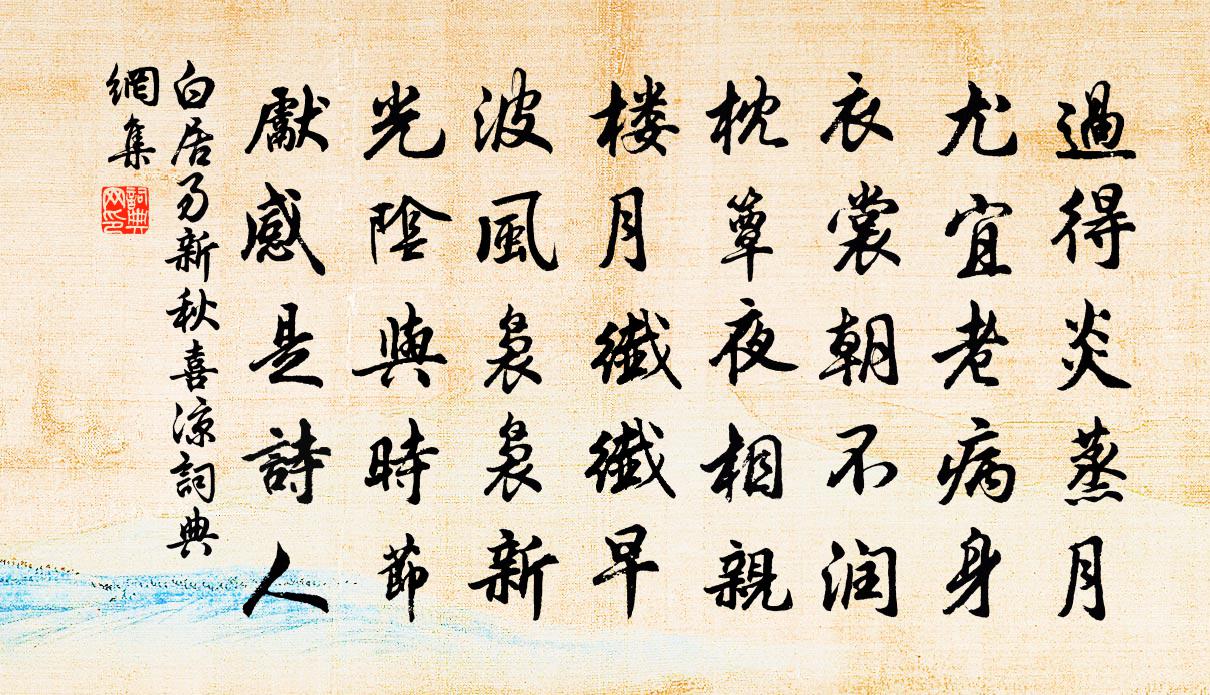 過得炎蒸月
尤宜老病身
衣裳朝不润
枕簟夜相親
楼月纖纖早
波風裊裊新
光陰與時節
獻感是詩人
白居易新秋喜涼詞典
網集
詞典
网印